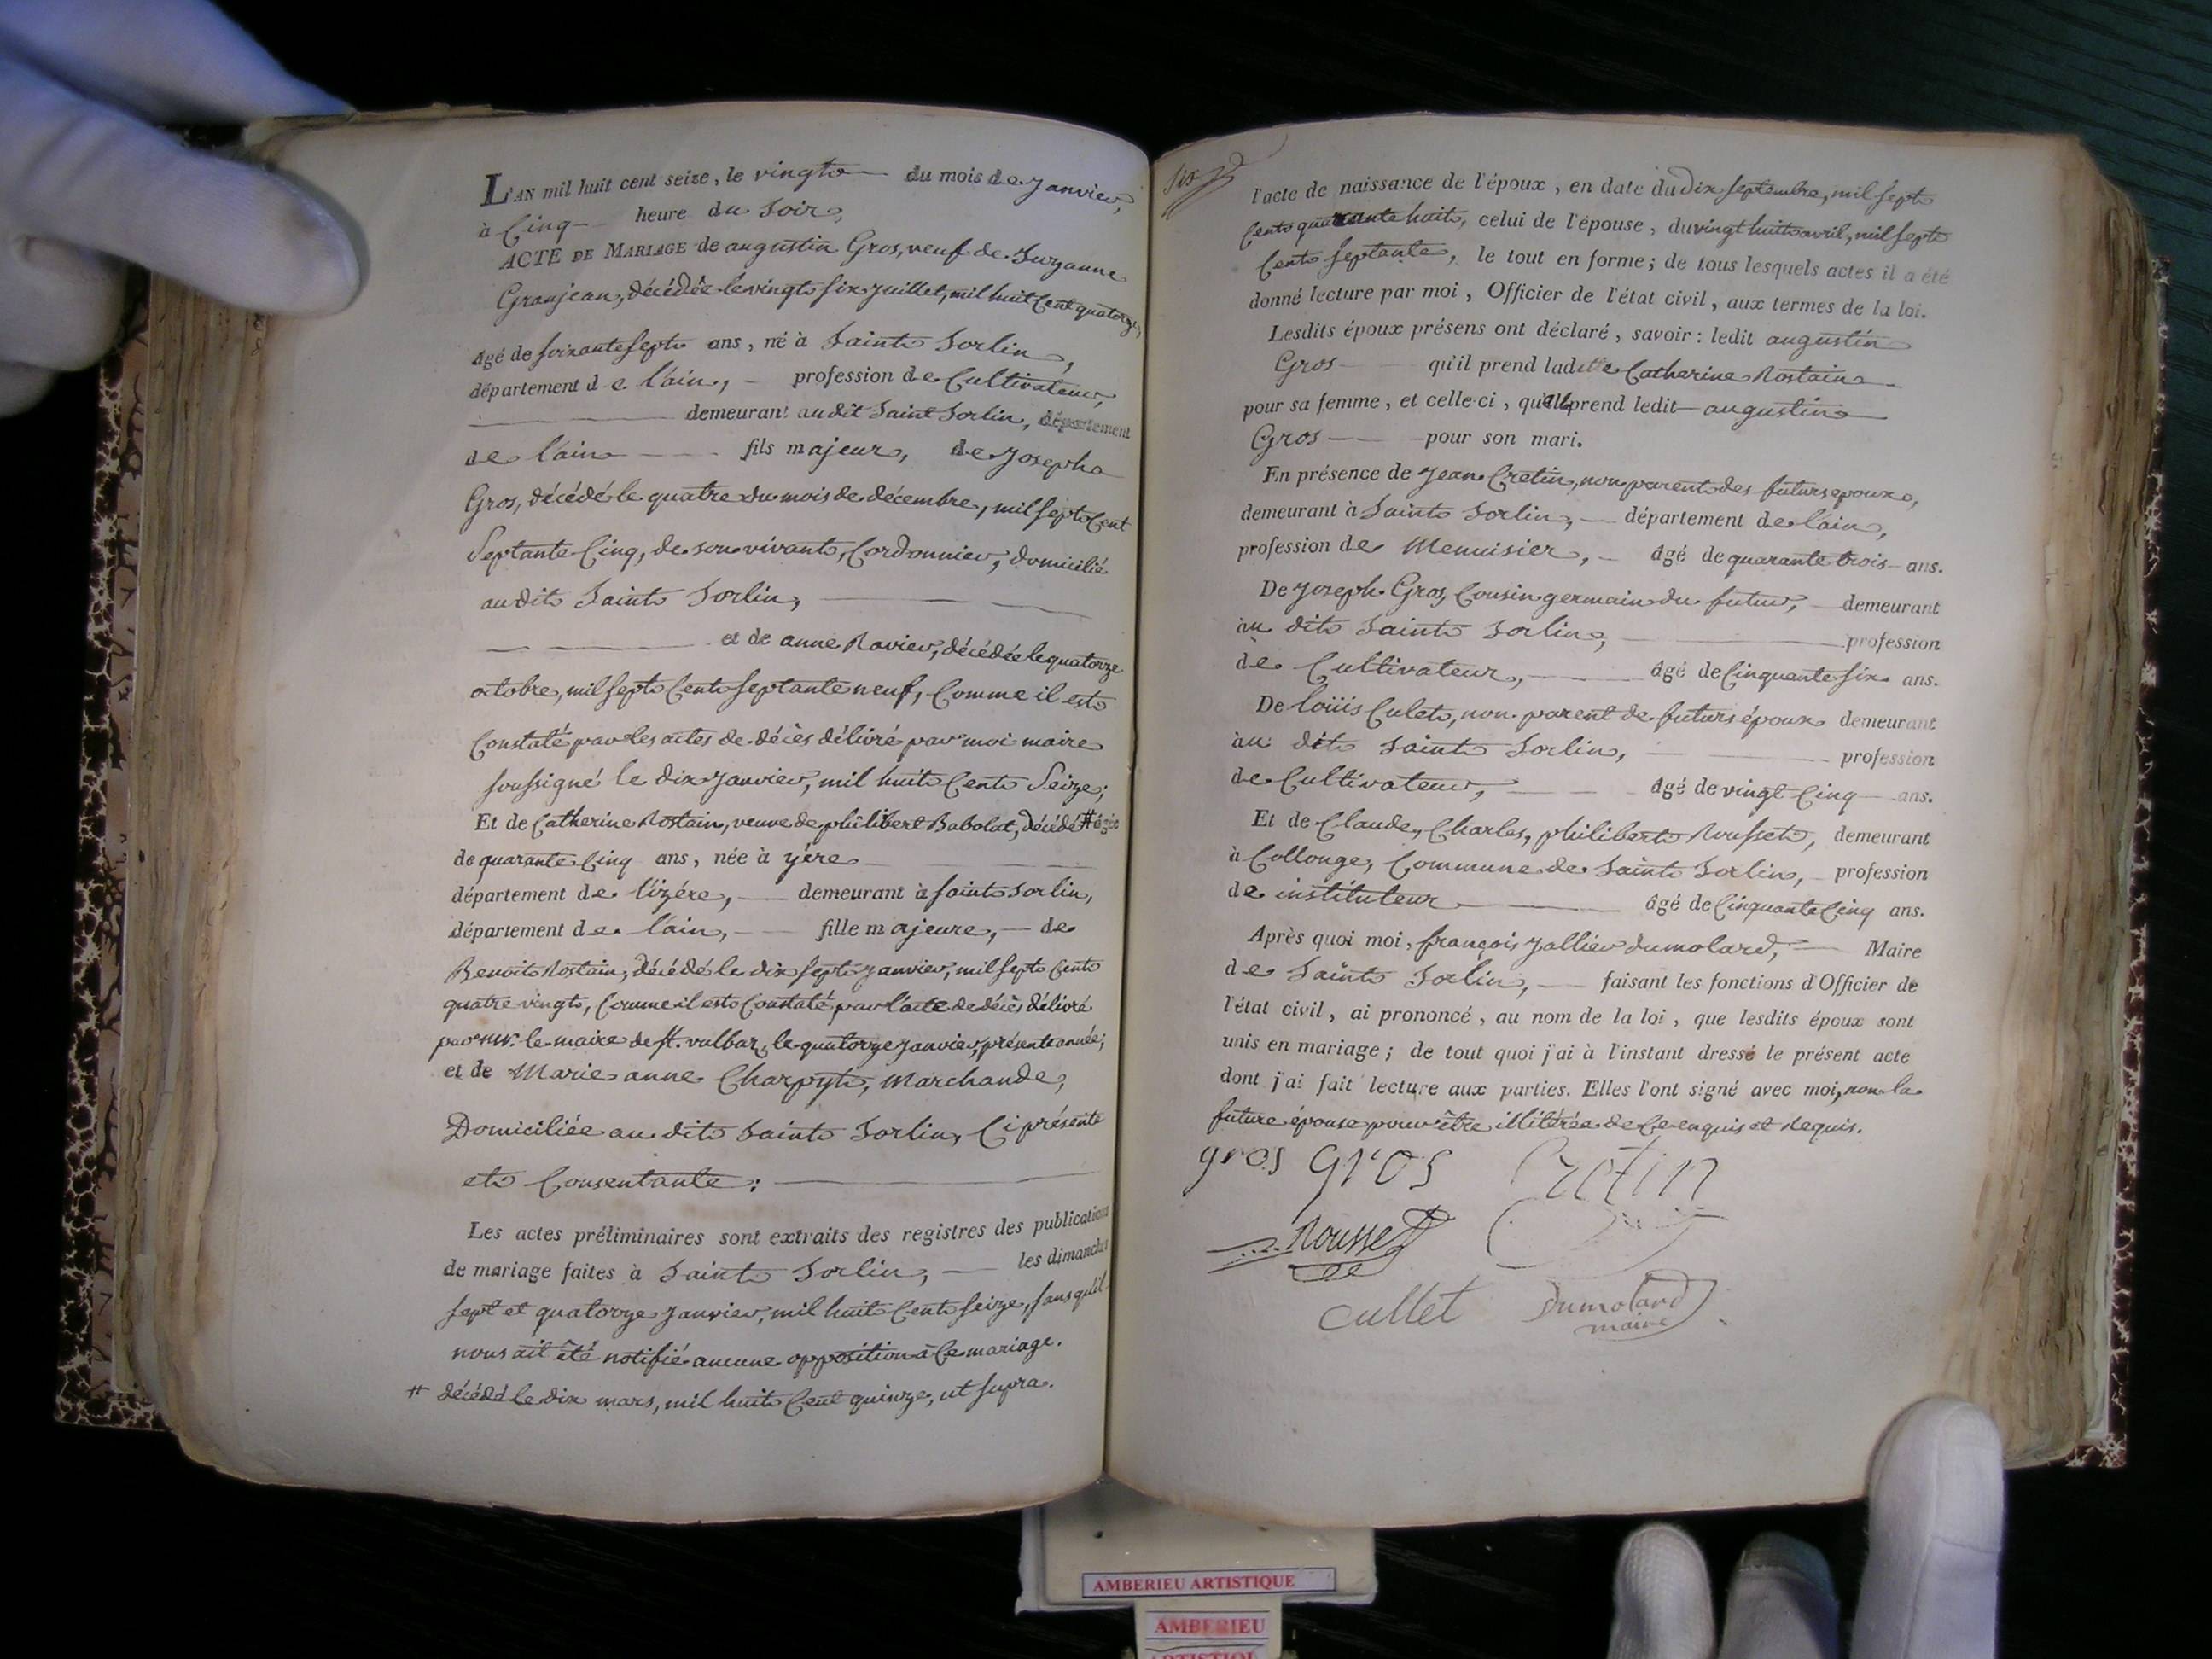 L'AN mil huit cent seize, le vingt du mois de Janvier,
à Cinq heure du Soir,
ACTE DE MARIAGE de augustin Gros, veuf de Suzanne
Granjean, décédée le vingt six Juillet, mil huit Cent quatorze,
âgé de soixante sept ans, né à Saint Sorlin,
département de l'ain, profession de Cultivateur,
demeurant audit Saint Sorlin, département
de l'ain fils majeur, de Joseph
Gros, décédé le quatre du mois de décembre, mil sept Cent
Septante Cinq, de son vivant, Cordonnier, domicilié
audit Saint Sorlin,
et de anne Ravier, décédée le quatorze
octobre, mil sept Cent septante neuf, Comme il est
Constaté par les actes de décès délivré par moi maire
soussigné le dix Janvier, mil huit Cent Seize;
Et de Catherine Rostain, veuve de philibert Babolat, décédé # âgée
de quarante Cinq ans, née à yère
département de l'izére, demeurant à saint Sorlin,
département de l'ain, fille majeure, de
Benoit Rostain, décédé le dix sept Janvier, mil sept Cent
quatre vingt, Comme il est Constaté par l'acte de décès délivré
par mr. le maire de st. vulbaz, le quatorze Janvier, présente année;
et de Marie anne Charpyt, Marchande,
Domiciliée au dit Saint Sorlin, Ci présente
et Consentante:
Les actes préliminaires sont extraits des registres des publications
de mariage faites à Saint Sorlin, les dimanches
sept et quatorze Janvier, mil huit Cent seize, sans qu'il
nous ait été notifié aucune opposition à Ce mariage.
# décédé le dix mars, mil huit Cent quinze, ut supra.
six
l'acte de naissance de l'époux, en date du dix septembre, mil sept
Cent quarante huit, celui de l'épouse, du vingt huit avril, mil sept
Cent septante, le tout en forme; de tous lesquels actes il a été
donné lecture par moi, Officier de l'état civil, aux termes de la loi.
Lesdits époux présens ont déclaré, savoir: ledit augustin
Gros qu'il prend ladite Catherine Rostain
pour sa femme, et celle-ci, qu'elle prend ledit augustin
Gros pour son mari.
En présence de Jean Cretin, non parent des futurs epoux,
demeurant à Saint Sorlin, département de l'ain,
profession de Menuisier, âgé de quarante trois ans.
De Joseph Gros, Cousin germain du futur, demeurant
au dit Saint Sorlin, profession
de Cultivateur, âgé de Cinquante six ans.
De loüis Culet, non parent de futurs époux demeurant
au dit Saint Sorlin, profession
de Cultivateur, âgé de vingt Cinq ans.
Et de Claude, Charles, philibert Rousset, demeurant
à Collonge, Commune de Saint Sorlin, profession
de instituteur âgé de Cinquante Cinq ans.
Après quoi moi, françois Jallier dumolard, Maire
de Saint Sorlin, faisant les fonctions d'Officier de
l'état civil, ai prononcé, au nom de la loi, que lesdits époux sont
unis en mariage; de tout quoi j'ai à l'instant dressé le présent acte
dont j'ai fait lecture aux parties. Elles l'ont signé avec moi, non la
future épouse pour être illitérée de Ce enquis et Requis.
gros gros Cretin
Rousset
cullet Dumolard
maire
AMBERIEU ARTISTIQUE
AMBERIEU
ARTISTIQUE